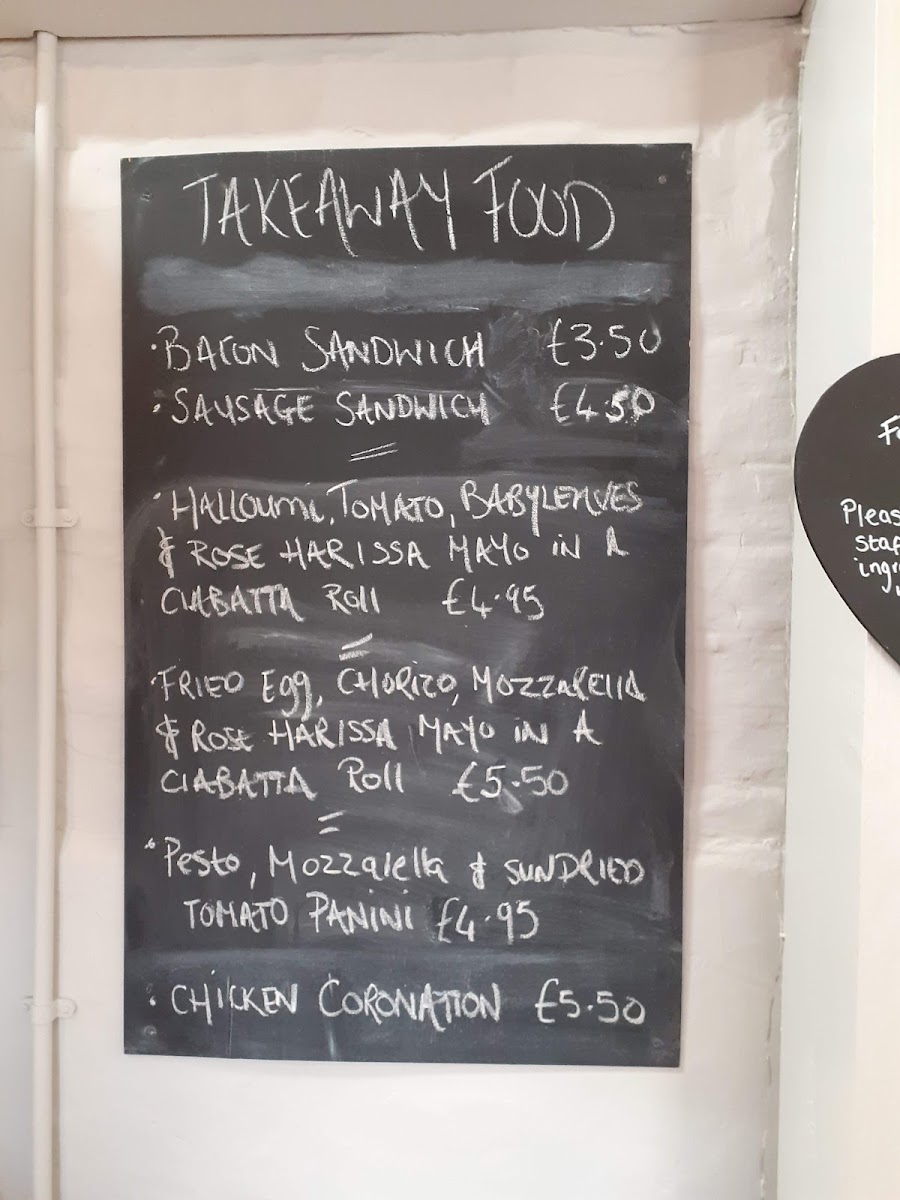 TAKEAWAY FOOD
· BACON SANDWICH £3.50
· SAUSAGE SANDWICH £4.50
· HALLOUMI, TOMATO, BABYLEAVES
& ROSE HARISSA MAYO IN A
CIABATTA ROLL £4.95
· FRIED EGG, CHORIZO, MOZZARELLA
& ROSE HARISSA MAYO IN A
CIABATTA ROLL £5.50
· Pesto, Mozzarella & SUNDRIED
TOMATO PANINI £4.95
· CHICKEN CORONATION £5.50